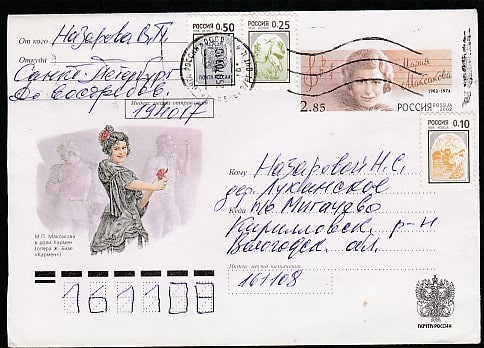 От кого Назарова В.П.
Откуда
Санкт-Петербург
До востребов.
Индекс места отправления
191017
РОССИЯ 0.50
РОССИЯ 0.25
Мария
Максакова
1902-1974
2.85
РОССИЯ ROSSIJA
2002
РОССИЯ 0.10
М.П. Максакова
в роли Кармен
(опера Ж. Бизе
«Кармен»)
Кому Назаровой Н.С.
дер. Лукинское
Куда п/о Мигачево
Кирилловск. р-н
Вологодск. обл.
Индекс места назначения
161108
161108
ПОЧТА РОССИИ